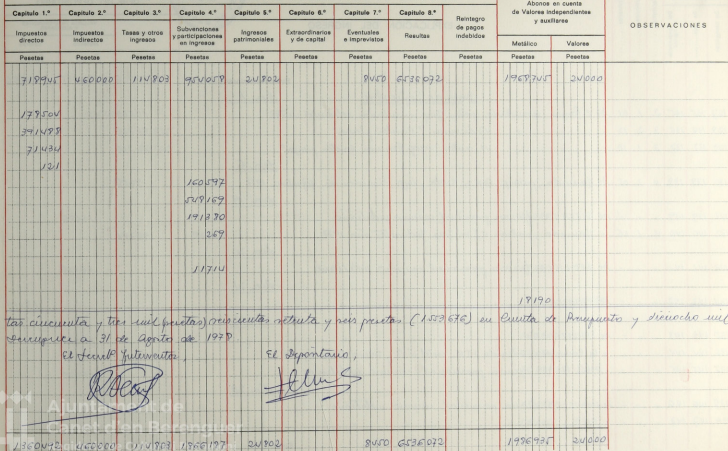 Capítulo 1.º Capítulo 2.º Capítulo 3.º Capítulo 4.º Capítulo 5.º Capítulo 6.º Capítulo 7.º Capítulo 8.º Reintegro de pagos indebidos Abonos en cuenta de Valores independientes y auxiliares OBSERVACIONES
Impuestos directos Impuestos indirectos Tasas y otros ingresos Subvenciones y participaciones en ingresos Ingresos patrimoniales Extraordinarios y de capital Eventuales e imprevistos Resultas Metálico Valores
Pesetas Pesetas Pesetas Pesetas Pesetas Pesetas Pesetas Pesetas Pesetas Pesetas Pesetas
718945 460000 114803 954058 24802 8450 6536072 1968745 24000
179504
391488
71434
121
160597
548169
191380
269
11714
18190
tas cincuenta y tres mil (pesetas) seiscientas setenta y seis pesetas (1553676) en Cuenta de Presupuesto y dieciocho mil
Berenguer a 31 de Agosto de 1978
El Secretº Interventor, El Depositario,
Ajuntament de
Canet d'en Berenguer
1360492 460000 114803 1866197 24802 8450 6536072 1986935 24000